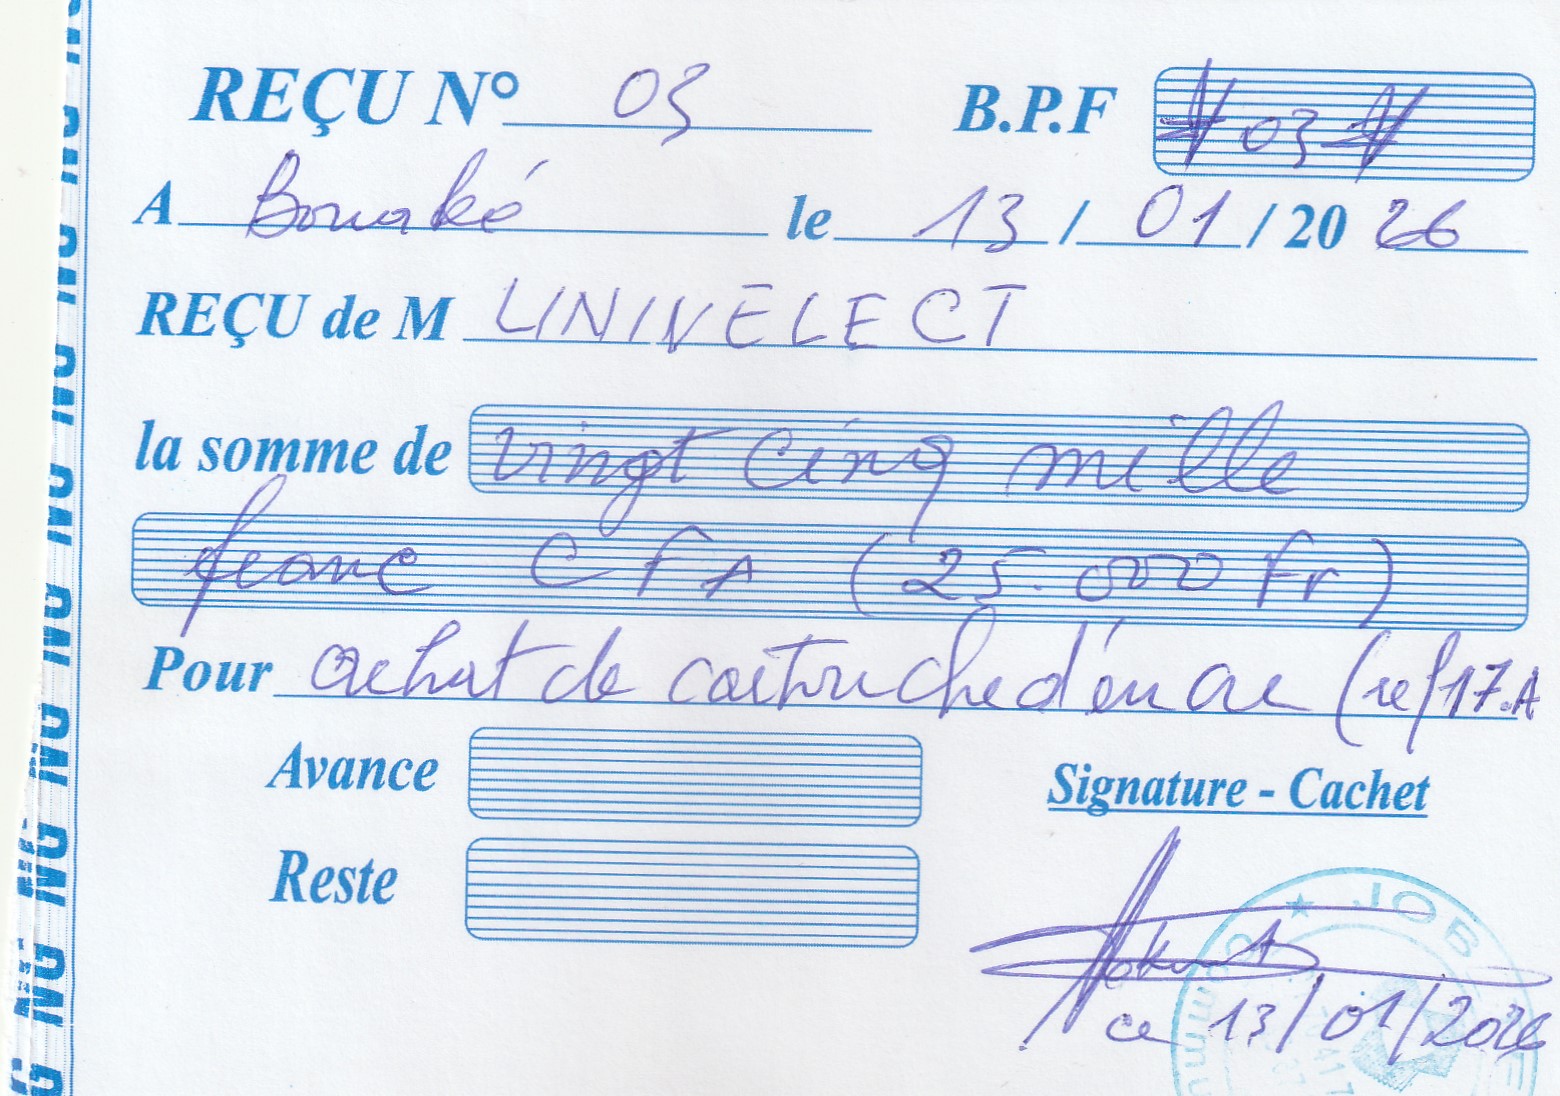 REÇU N° 03 B.P.F # 03 #
A Bouaké le 13 / 01 / 20 26
REÇU de M UNIVELECT
la somme de vingt cinq mille
franc CFA (25.000 Fr)
Pour achat de cartouche d'encre (ref 17.A
Avance
Reste
Signature - Cachet
ce 13/01/2026